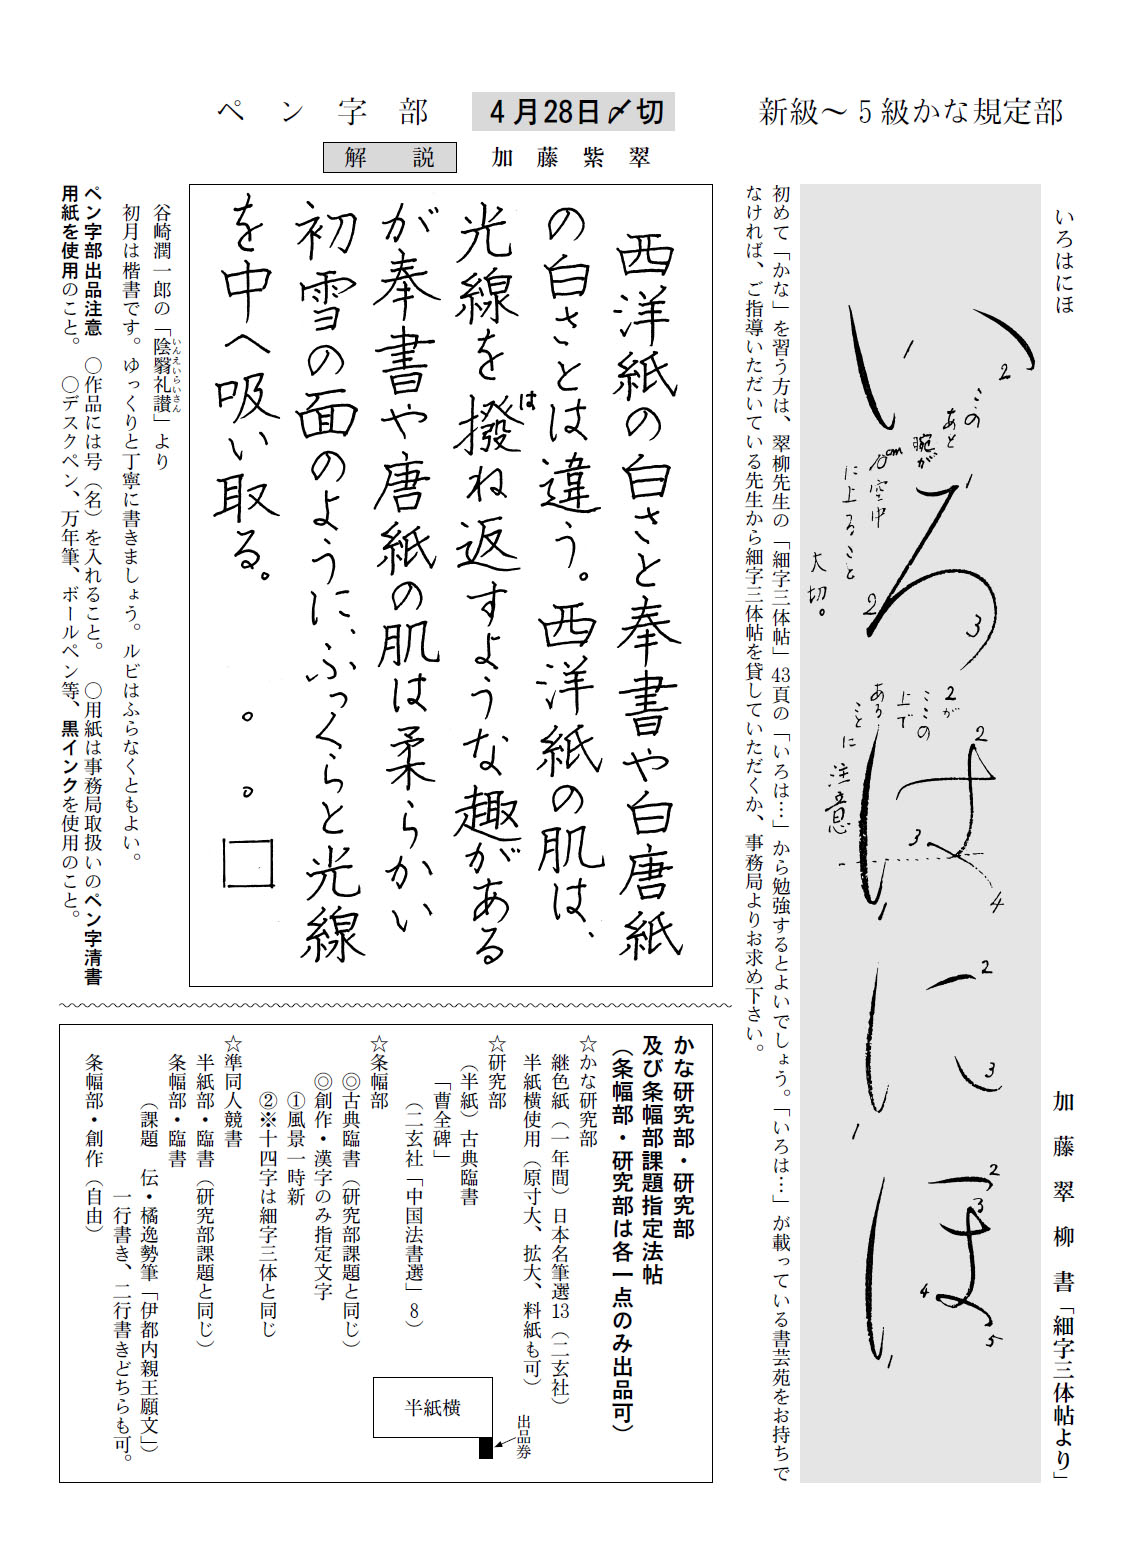 新級～5級かな規定部
いろはにほ
加藤翠柳書「細字三体帖より」
い
ろ
は
に
ほ
1
2
このあと
腕が
10cm空中
に上ること
大切。
1
2
3
2が
ここの
上で
ある
ことに
注意
1
2
3
4
1
2
3
1
2
3
4
5
初めて「かな」を習う方は、翠柳先生の「細字三体帖」43頁の「いろは…」から勉強するとよいでしょう。「いろは…」が載っている書芸苑をお持ちで
なければ、ご指導いただいている先生から細字三体帖を貸していただくか、事務局よりお求め下さい。
ペン字部
4月28日〆切
解説 加藤紫翠
西洋紙の白さと奉書や白唐紙
の白さとは違う。西洋紙の肌は、
光線を撥ね返すような趣がある
は
が奉書や唐紙の肌は柔らかい
初雪の面のように、ふっくらと光線
を中へ吸い取る。
。。□
谷崎潤一郎の「陰翳礼讃」より
いんえいらいさん
初月は楷書です。ゆっくりと丁寧に書きましょう。ルビはふらなくともよい。
ペン字部出品注意 ○作品には号（名）を入れること。 ○用紙は事務局取扱いのペン字清書
用紙を使用のこと。 ○デスクペン、万年筆、ボールペン等、黒インクを使用のこと。
かな研究部・研究部
及び条幅部課題指定法帖
（条幅部・研究部は各一点のみ出品可）
☆かな研究部
継色紙（一年間）日本名筆選13（二玄社）
半紙横使用（原寸大、拡大、料紙も可）
☆研究部
（半紙）古典臨書
「曹全碑」
（二玄社「中国法書選」8）
☆条幅部
◎古典臨書（研究部課題と同じ）
◎創作・漢字のみ指定文字
①風景一時新
②※十四字は細字三体と同じ
☆準同人競書
半紙部・臨書（研究部課題と同じ）
条幅部・臨書
（課題 伝・橘逸勢筆「伊都内親王願文」）
一行書き、二行書きどちらも可。
条幅部・創作（自由）
半紙横
出品券